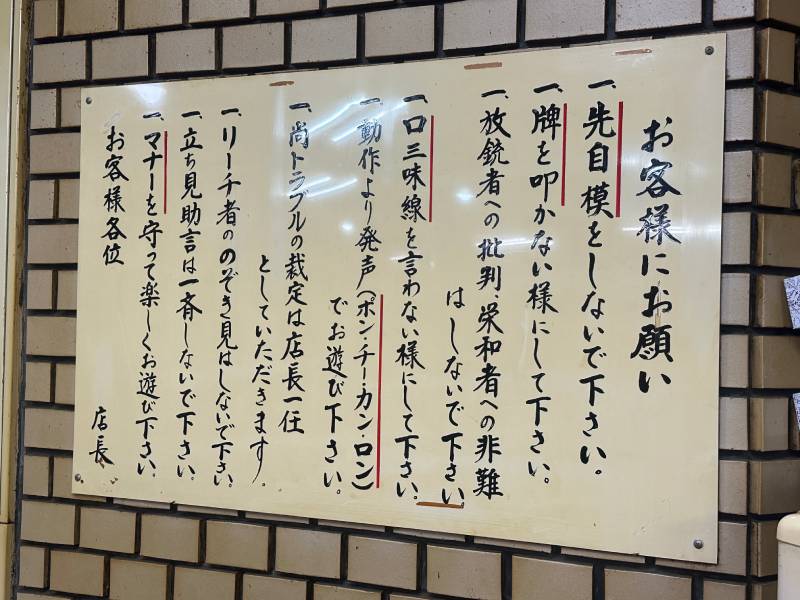 お客様にお願い
一、先自模をしないで下さい。
一、牌を叩かない様にして下さい。
一、放銃者への批判、栄和者への非難
はしないで下さい。
一、口三味線を言わない様にして下さい。
一、動作より発声(ポン・チー・カン・ロン)
でお遊び下さい。
一、尚トラブルの裁定は店長一任
としていただきます。
一、リーチ者ののぞき見はしないで下さい。
一、立ち見助言は一斉しないで下さい。
一、マナーを守って楽しくお遊び下さい。
お客様各位
店長